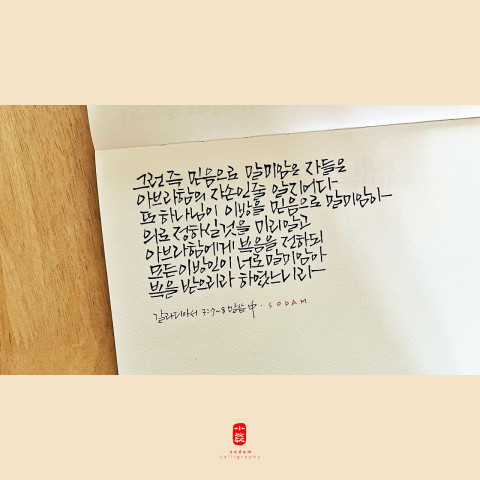 그런즉 믿음으로 말미암은 자들은
아브라함의 자손인줄 알지어다
또 하나님이 이방을 믿음으로 말미암아
의로 정하실것을 미리알고
아브라함에게 복음을 전하되
모든이방인이 너로말미암아
복을 받으리라 하였느니라
갈라디아서 3:7~8 말씀 中 · SODAM
sodam
calligraphy